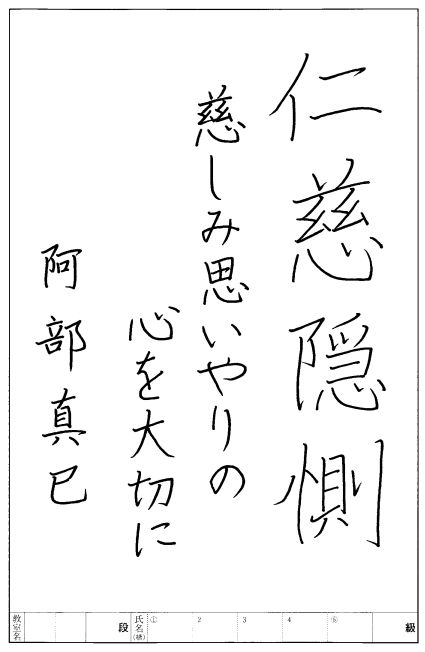 仁慈隠惻
慈しみ思いやりの
心を大切に
阿部真巳
教室名
段
氏名(横)
① 2 3 4 ⑤
級